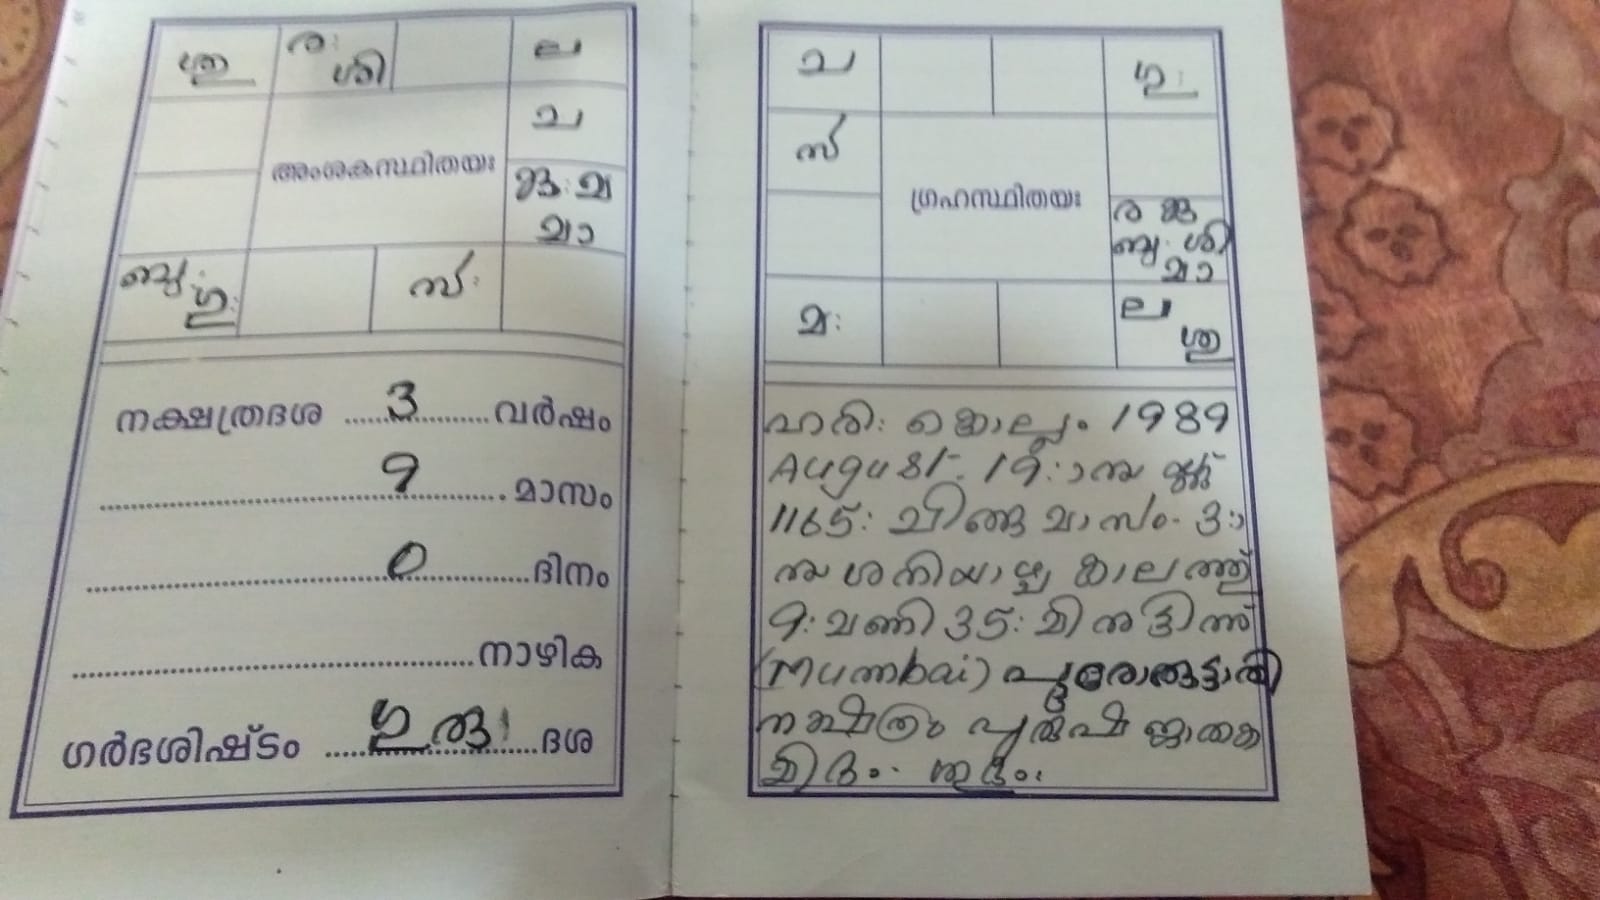 ശു
ര: ശി
ല
ച
അംശകസ്ഥിതയഃ
കു: മ
മാ
ബു: ഗു:
സ്:
നക്ഷത്രദശ 3 വർഷം
9 മാസം
0 ദിനം
നാഴിക
ഗർഭശിഷ്ടം ഗുരു ദശ
ച
ഗു:
സ്
ഗ്രഹസ്ഥിതയഃ
ര കു
ബു: ശി
മാ
മ:
ല
ശു
ഹരി: കൊല്ലം 1989
August 19:ാനു
1165: ചിങ്ങമാസം 3ാ
നു ശനിയാഴ്ച കാലത്ത്
9: മണി 35: മിനുട്ടിന്ന്
(Mumbai) പൂരോരുട്ടാതി
നക്ഷത്രം പുരുഷ ജാതക
മിദം. ശുഭം: